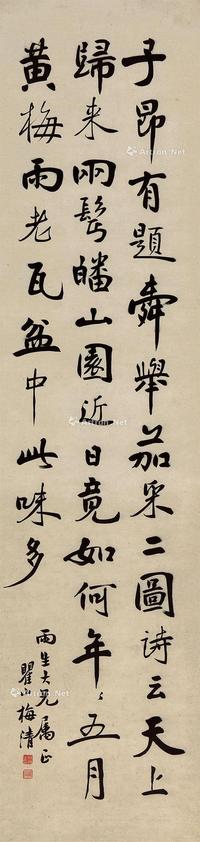 子昂有題舜舉茄菜二圖詩云天上
歸来兩鬂皤山園近日竟如何年〻五月
黄梅雨老瓦盆中此味多
雨生大兄属正
瞿山梅清